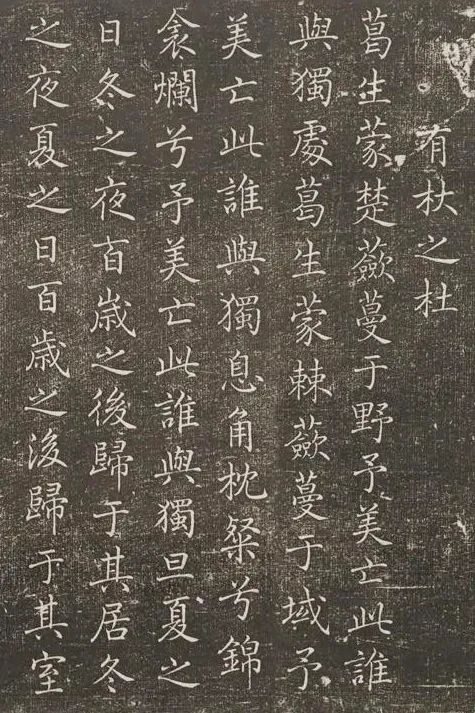 有杕之杜
葛生蒙楚蘞蔓于野予美亡此誰
與獨處葛生蒙棘蘞蔓于域予
美亡此誰與獨息角枕粲兮錦
衾爛兮予美亡此誰與獨旦夏之
日冬之夜百歳之後歸于其居冬
之夜夏之日百歳之後歸于其室